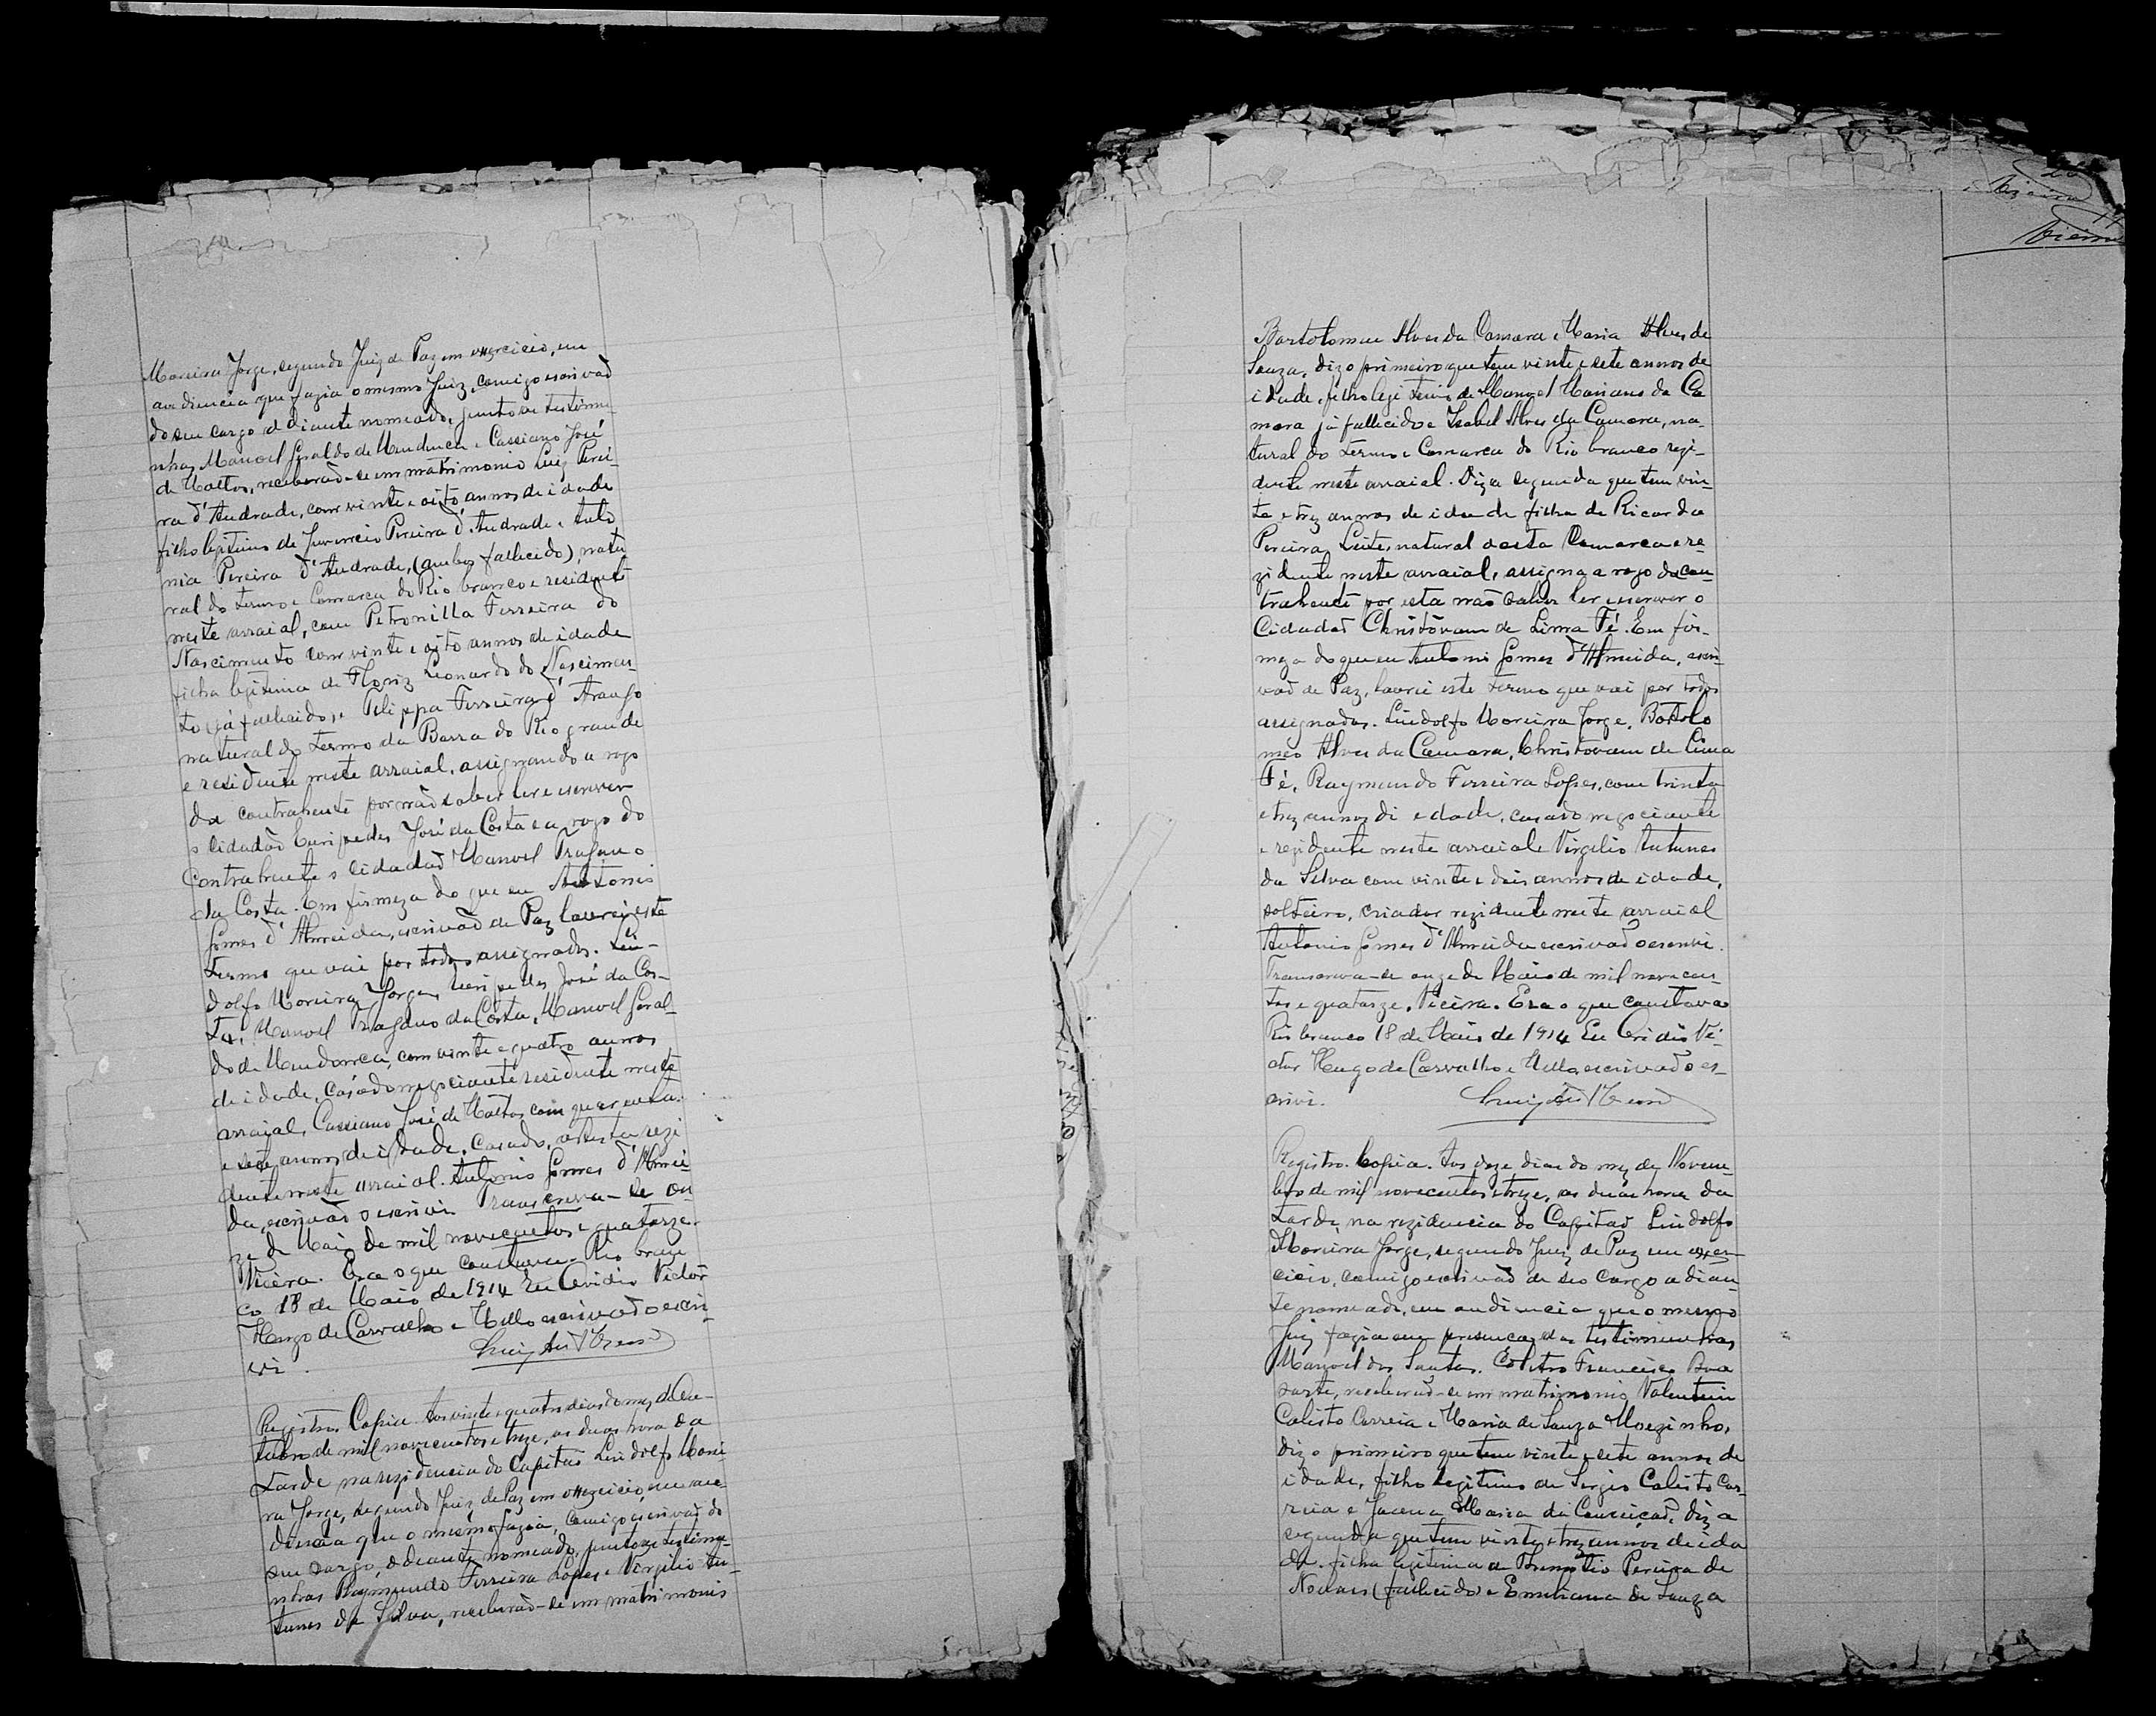 Moreira Jorge, segundo Juiz de Paz em exercicio, em
audiencia que fazia o mesmo Juiz, comigo escrivaõ
do seu cargo adiante nomeado, junto as testimu
nhas Manoel Geraldo de Mendonca e Cassiano José
de Mattos, receberaõ-se em matrimonio Luiz Perei-
ra d'Andrade, com vinte e oito annos de idade
filho legitimo de Juvencio Pereira d'Andrade e Anto
nia Pereira d'Andrade, (ambos fallecido), natu
ral do termo e Comarca do Rio branco e residente
neste arraial, com Petronilla Ferreira do
Nascimento com vinte e oito annos de idade
filha legitima de Floriz Leonardo do Nascimen-
to já fallecido, e Filippa Ferreira d'Araujo
natural do termo da Barra do Rio grande
e residente neste arraial, assignando a rogo
da contrahente por não saber ler e escrever
o Cidadaõ Euripedes José da Costa e a rogo do
Contrahente o cidadaõ Manoel Trajano
da Costa. Em firmeza do que eu Antonio
Gomes d'Almeida, escrivaõ de Paz lavrei este
termo que vai por todos assignados. Lin-
dolfo Moreira Jorge, Euripedes José da Cos-
ta, Manoel Trajano da Costa, Manoel Geral-
do de Mendonca, com vinte e quatro annos
de idade, casado negociante residente neste
arraial, Cassiano José de Mattos com quarenta
e sete annos de idade, casado, artista rezi
dente neste arraial. Antonio Gomes d'Almei-
da, escrivaõ o escrivi. Transcreva-se on
ze de Maio de mil novecentos e quatorze.
Vieira. Era o que constava. Rio bran
co 18 de Maio de 1914 Eu Ovidio Victor
Hugo de Carvalho e Mello escrivaõ o escri
vi.
Registro. Copia. Aos vinte e quatro dias do mez de Ou-
tubro de mil novecentos e treze, as duas hora da
tarde na rezidencia do Capitaõ Lindolfo Morei
ra Jorge, segundo Juiz de Paz em exercicio, em au-
diencia que o mesmo fazia, comigo escrivaõ do
seu cargo, adeante nomeado, junto as testimu-
nhas Raymundo Ferreira Lopes e Virgilio An-
tunes da Silva, receberaõ-se em matrimonio
Vieira
Vieira
Bartolomeu Alves da Camara e Maria Alves de
Souza, diz o primeiro que tem vinte e sete annos de
idade, filho legitimo de Manoel Mariano da Ca
mara já fallecido e Izabel Alves da Camara, na-
tural do termo e Comarca do Rio branco rezi-
dente neste arraial. Diz a segunda que tem vin-
te e trez annos de idade filha de Ricarda
Pereira Leite, natural desta Comarca e re-
zidente neste arraial, assigna a rogo da con-
trahente por esta não saber ler e escrever o
Cidadaõ Christovam de Lima Fé. Em fir-
meza do que eu Antonio Gomes d'Almeida, escri-
vaõ de Paz, lavrei este termo que vai por todos
assignados. Lindolfo Moreira Jorge, Bartolo
meo Alves da Camara, Christovam de Lima
Fé, Raymundo Ferreira Lopes, com trinta
e trez annos di edade, casado negociante
e rezidente neste arraial e Virgilio Antunes
da Silva com vinte e dois annos de idade,
solteiro, criador rezidente neste arraial
Antonio Gomes d'Almeida escrivaõ o escrivi.
Transcreva-se onze de Maio de mil novecen-
tos e quatorze. Vieira. Era o que constava
Rio branco 18 de Maio de 1914 Eu Ovidio Vi-
ctor Hugo de Carvalho e Mello escrivaõ o es-
crivi.
Registro. Copia. Aos doze dias do mez de Novem-
bro de mil novecentos e treze, as duas hora da
tarde, na rezidencia do Capitaõ Lindolfo
Moreira Jorge, segundo Juiz de Paz em exer-
cicio, comigo escrivaõ de seo cargo adian-
te nomeado, em audiencia que o mesmo
Juiz fazia em presença das testimunhas
Manoel dos Santos. Francisco Dua
rte, receberaõ-se em matrimonio Valentim
Calisto Correia e Maria de Souza
diz o primeiro que tem vinte e sete annos de
idade, filho legitimo de Sergio Calisto Cor-
reia e Maria da Conceiçaõ, diz a
segunda que tem vinte e trez annos de ida
de. filha legitima de Pereira de
Novaes (fallecido) e Emiliana de Souza